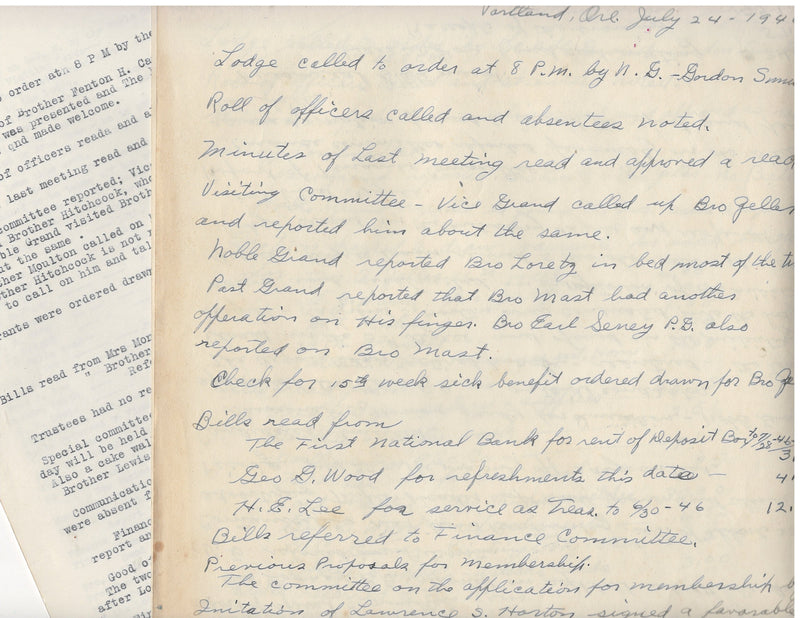 order ath 8 P M by the
of Brother Fenton H. Ca
was presented and The
and made welcome.
of officers reada and a
last meeting read and
committee reported; Vice
Brother Hitchcock, who
ble Grand visited Broth
ut the same.
ther Moulton called on
ther Hitchcock is not
to call on him and tal
rants were ordered drawn
Bills read from Mrs Mor
" Brother
Ref
Trustees had no re
Special committee
day will be held
Also a cake wal
Brother Lewis
Communicatio
were absent f
Financ
report an
Good o
The two
after Lo
Portland, Ore. July 24 - 194
Lodge called to order at 8 P.M. by N. G. - Gordon
Roll of officers called and absentees noted.
Minutes of Last meeting read and approved a read
Visiting Committee - Vice Grand called up Bro Zeller
and reported him about the same.
Noble Grand reported Bro Loretz in bed most of the ti
Past Grand reported that Bro Mast had another
opperation on His finger. Bro Earl Seney P.G. also
reported on Bro Mast.
Check for 15th week sick benefit ordered drawn for Bro Ze
Bills read from
The First National Bank for rent of Deposit Box to 7/28-46- 3.
Geo G. Wood for refreshments this date - 4.
H. E. Lee for service as Treas. to 6/30-46 12.
Bills referred to Finance Committee.
Previous Proposals for Membership.
The committee on the application for membership b
Initation of Lawrence S. Horton signed a favorable